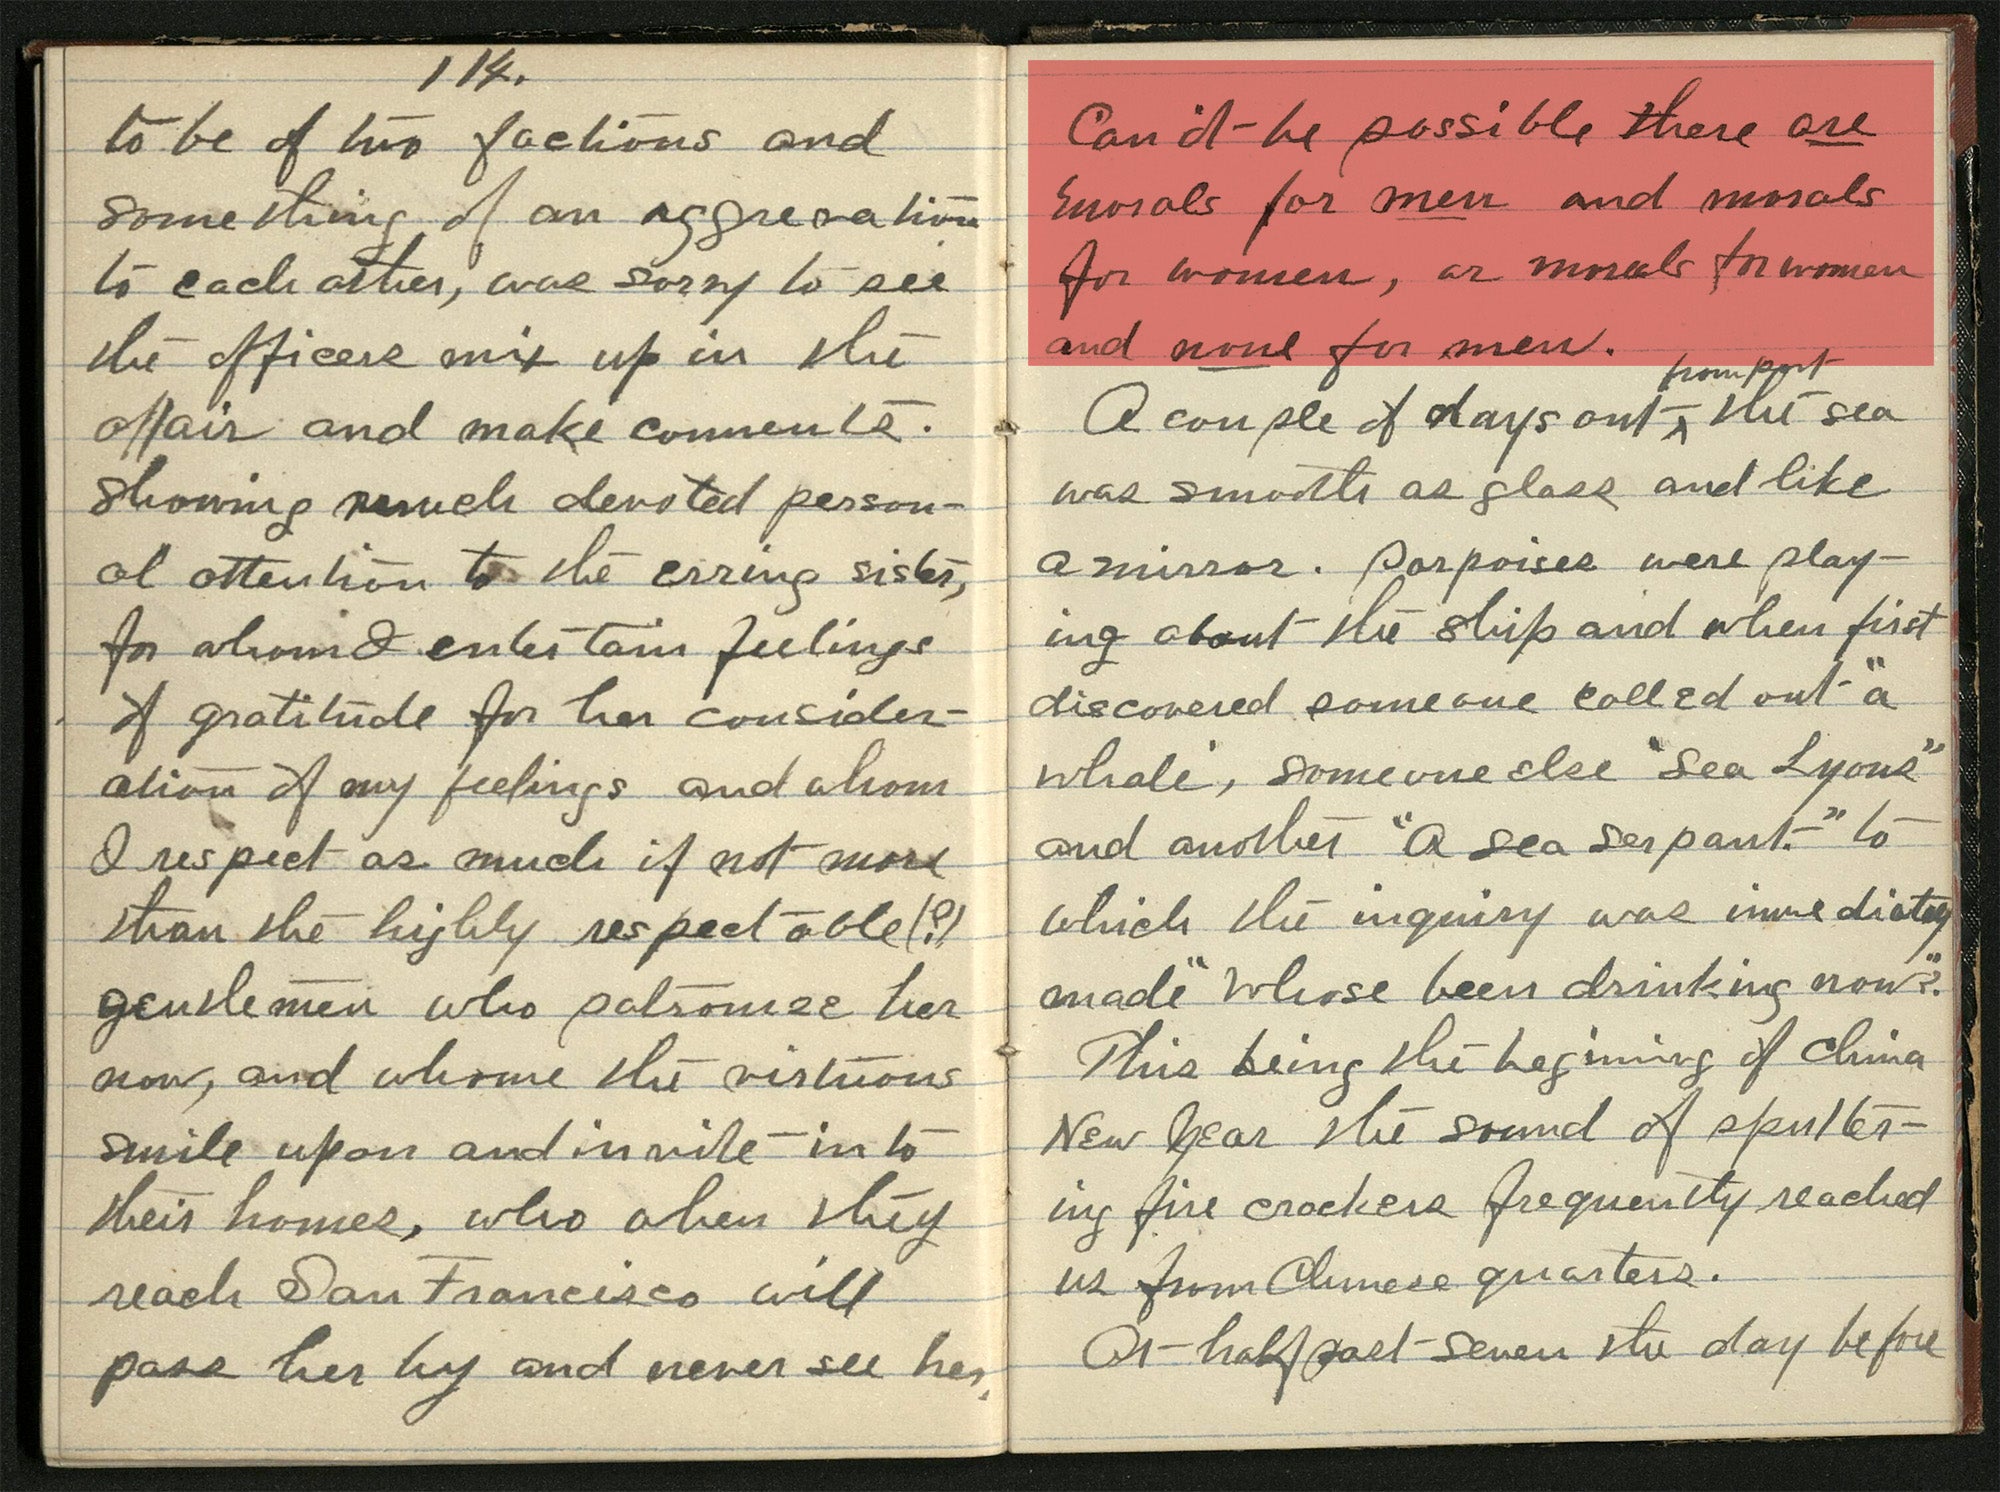 114.
to be of two factions and
something of an aggrevation
to each other, was sorry to see
the officers mix up in the
affair and make comments.
showing much devoted person-
al attention to the erring sister,
for whom I entertain feelings
of gratitude for her consider-
ation of my feelings and whom
I respect as much if not more
than the highly respectable (?)
gentlemen who patronize her
now, and whome the virtuous
smile upon and invite into
their homes, who when they
reach San Francisco will
pass her by and never see her.
Can it be possible there are
morals for men and morals
for women, or morals for women
and none for men.
from port
A couple of days out ^ the sea
was smooth as glass and like
a mirror. Porpoises were play-
ing about the ship and when first
discovered someone called out "a
whale", someone else "Sea Lyons"
and another "A sea serpant." to
which the inquiry was immediatey
made "Whose been drinking now"?
This being the begining of China
New Year the sound of sputter-
ing fire crackers frequently reached
us from Chinese quarters.
At half past seven the day before